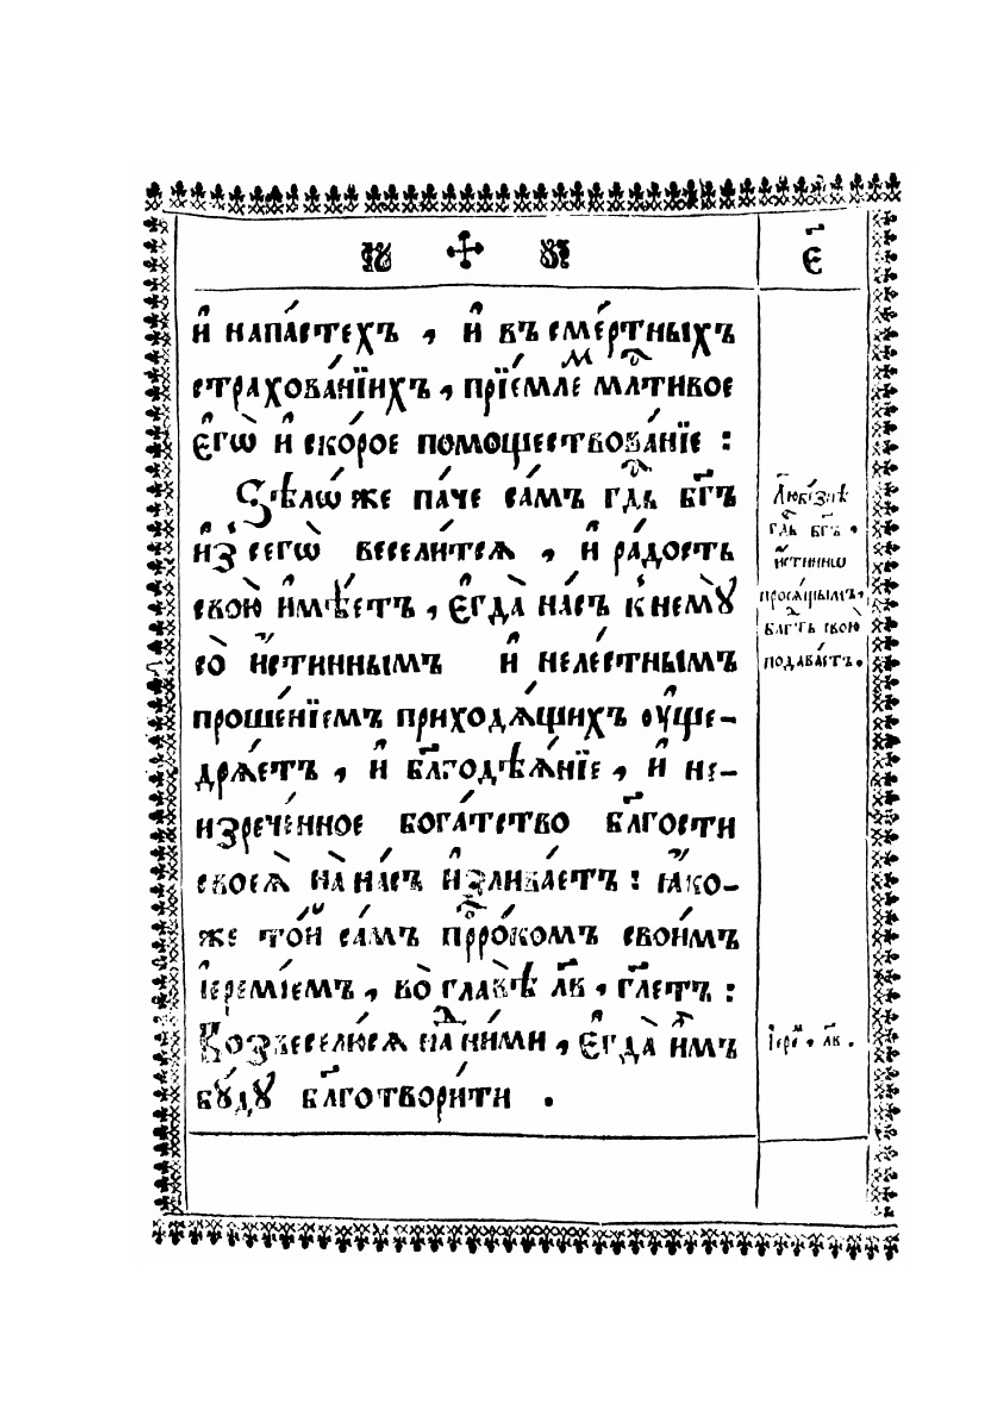 є҃
и҆ напа́стехъ , и҆ въ сме́ртныхъ
страхова́нїихъ , прїе́мле мⷭ҇тивое
є҆гѡ̀ и҆ ско́рое помоществова́нїе :
Ѕѣлѡ́ же па́че са́мъ гдⷭ҇ь бг҃ъ
и҆з̾ сегѡ̀ весели́тсѧ , и҆ ра́дость
свою̀ и҆мѣ́етъ , є҆гда̀ на́съ к̾ немꙋ̀
со̀ и҆́стиннымъ и҆ неле́стнымъ
проше́нїемъ приходѧ́щихъ ᲂу҆ще-
дрѧ́етъ , и҆ бл҃годѣѧ́нїе , и҆ не-
изрече́нное бога́тство бл҃гости
своеѧ̀ на̀ на́съ и҆злива́етъ : ꙗ҆́ко-
же то́й са́мъ прⷪ҇ро́комъ свои́мъ
і҆еремі́емъ , во̀ главѣ̀ л҃в , гл҃етъ :
Возвеселю́сѧ наⷣ ни́ми , є҆гда̀ и҆́мъ
бꙋ́дꙋ бл҃готвори́ти .
Любе́знѣ
гдⷭ҇ь бг҃ъ .
и҆́стиннѡ
просѧ́щымъ ,
блгⷣть свою̀
подава́етъ .
І҆ереⷨ . л҃в .